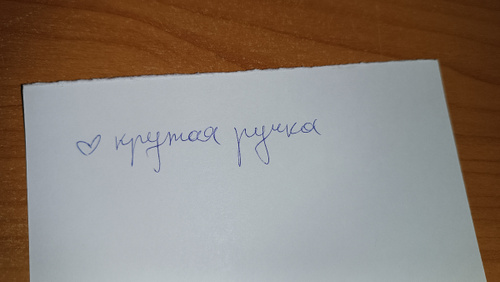 ♡ крутая ручка